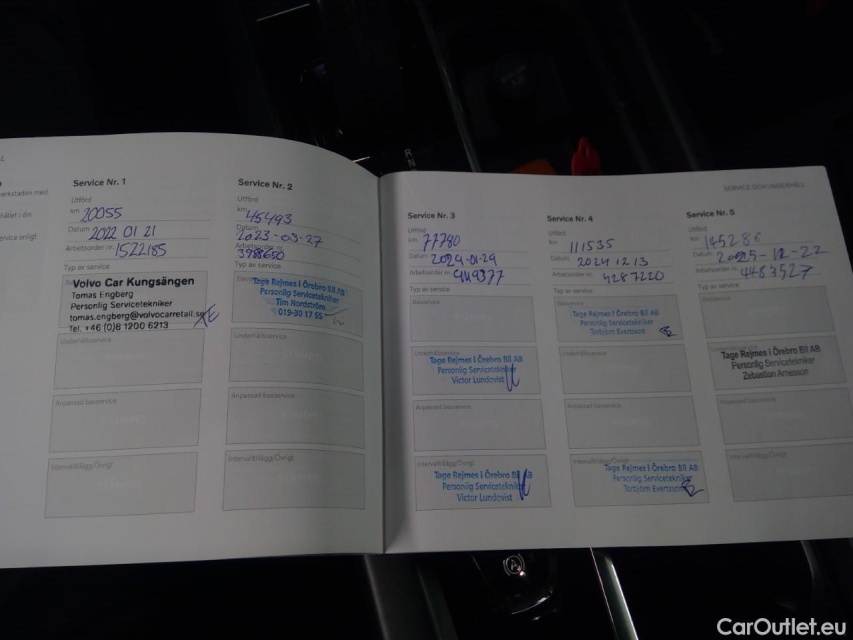 verkstaden med
hållet i din
ervice enligt
Service Nr. 1
Utförd
km 20055
Datum 2022 01 21
Arbetsorder nr. 1522185
Typ av service
Volvo Car Kungsängen
Tomas Engberg
Personlig Servicetekniker
tomas.engberg@volvocarretail.se
Tel. +46 (0)8 1200 6213
Underhållsservice
Anpassad basservice
Intervalltillägg/Övrigt
Service Nr. 2
Utförd
km 45493
Datum 2023-03-27
Arbetsorder nr. 3988650
Typ av service
Tage Rejmes i Örebro Bil AB
Personlig Servicetekniker
Tim Nordström
019-30 17 55
Underhållsservice
Anpassad basservice
Intervalltillägg/Övrigt
Service Nr. 3
Utförd
km 77780
Datum 2024-01-29
Arbetsorder nr. 4119377
Typ av service
Basservice
Underhållsservice
Tage Rejmes i Örebro Bil AB
Personlig Servicetekniker
Victor Lundqvist
Anpassad basservice
Intervalltillägg/Övrigt
Tage Rejmes i Örebro Bil AB
Personlig Servicetekniker
Victor Lundqvist
Service Nr. 4
Utförd
km 111535
Datum 2024 12 13
Arbetsorder nr. 4287220
Typ av service
Basservice
Tage Rejmes i Örebro Bil AB
Personlig Servicetekniker
Torbjörn Evertsson
Underhållsservice
Anpassad basservice
Intervalltillägg/Övrigt
Tage Rejmes i Örebro Bil AB
Personlig Servicetekniker
Torbjörn Evertsson
SERVICE OCH UNDERHÅLL
Service Nr. 5
Utförd
km 145286
Datum 2025-12-22
Arbetsorder nr. 4483527
Typ av service
Basservice
Tage Rejmes i Örebro Bil AB
Personlig Servicetekniker
Zebastian Arnesson
Anpassad basservice
Intervalltillägg/Övrigt
R N
A
CarOutlet.eu